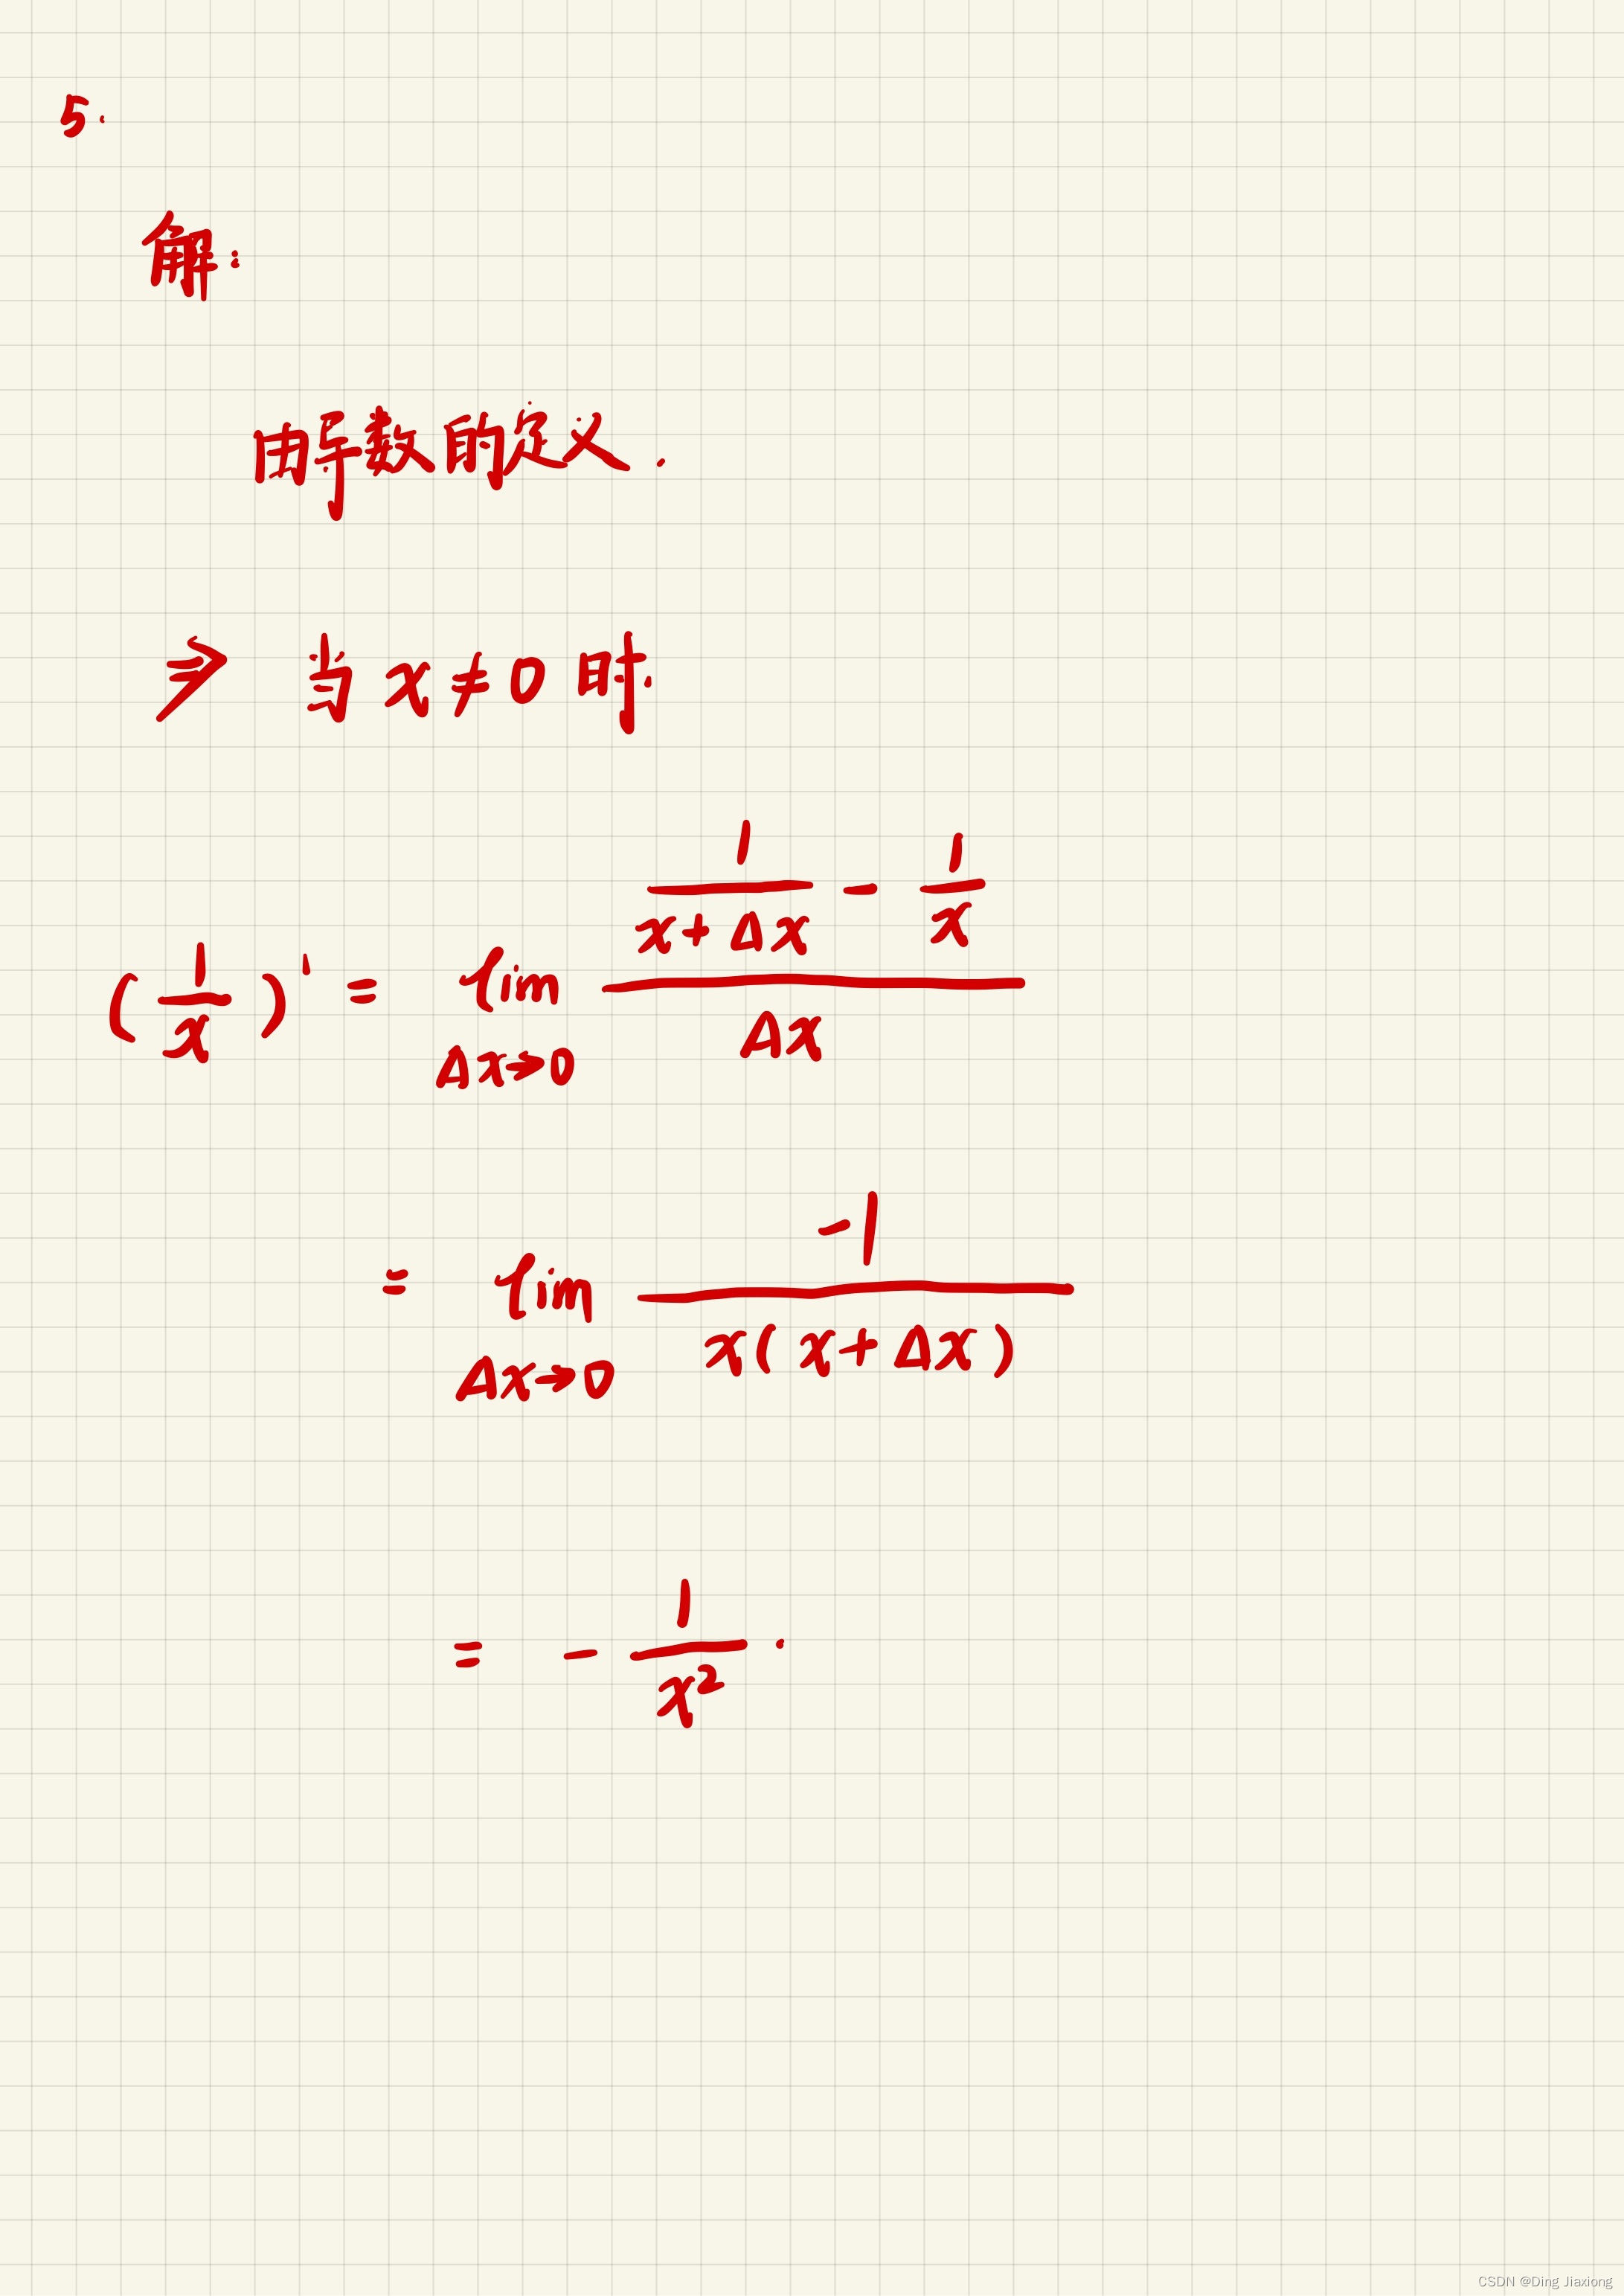 5.
解：
由导数的定义.
⇒ 当 x ≠ 0 时.
(1/x)' = lim_{Δx→0} (1/(x+Δx) - 1/x)/Δx
= lim_{Δx→0} -1/(x(x+Δx))
= - 1/x² .
CSDN @Ding Jiaxiong